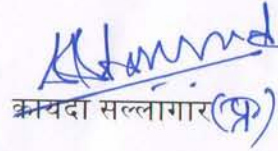 कायदा सल्लागार(प्र)